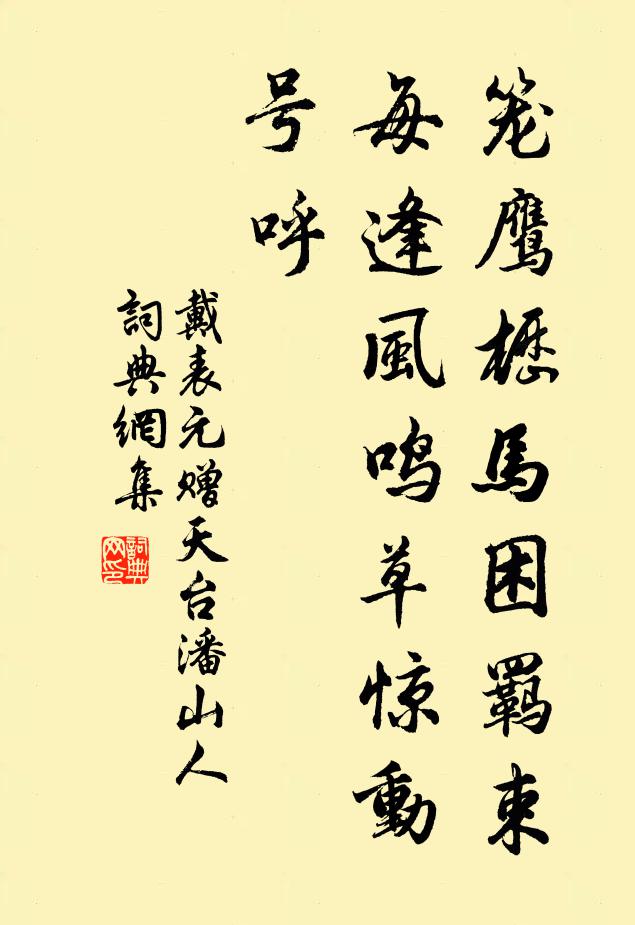 笼鹰枥馬困羁束
每逢風鸣草惊動
号呼
戴表元赠天台潘山人
詞典網集
詞典
网印